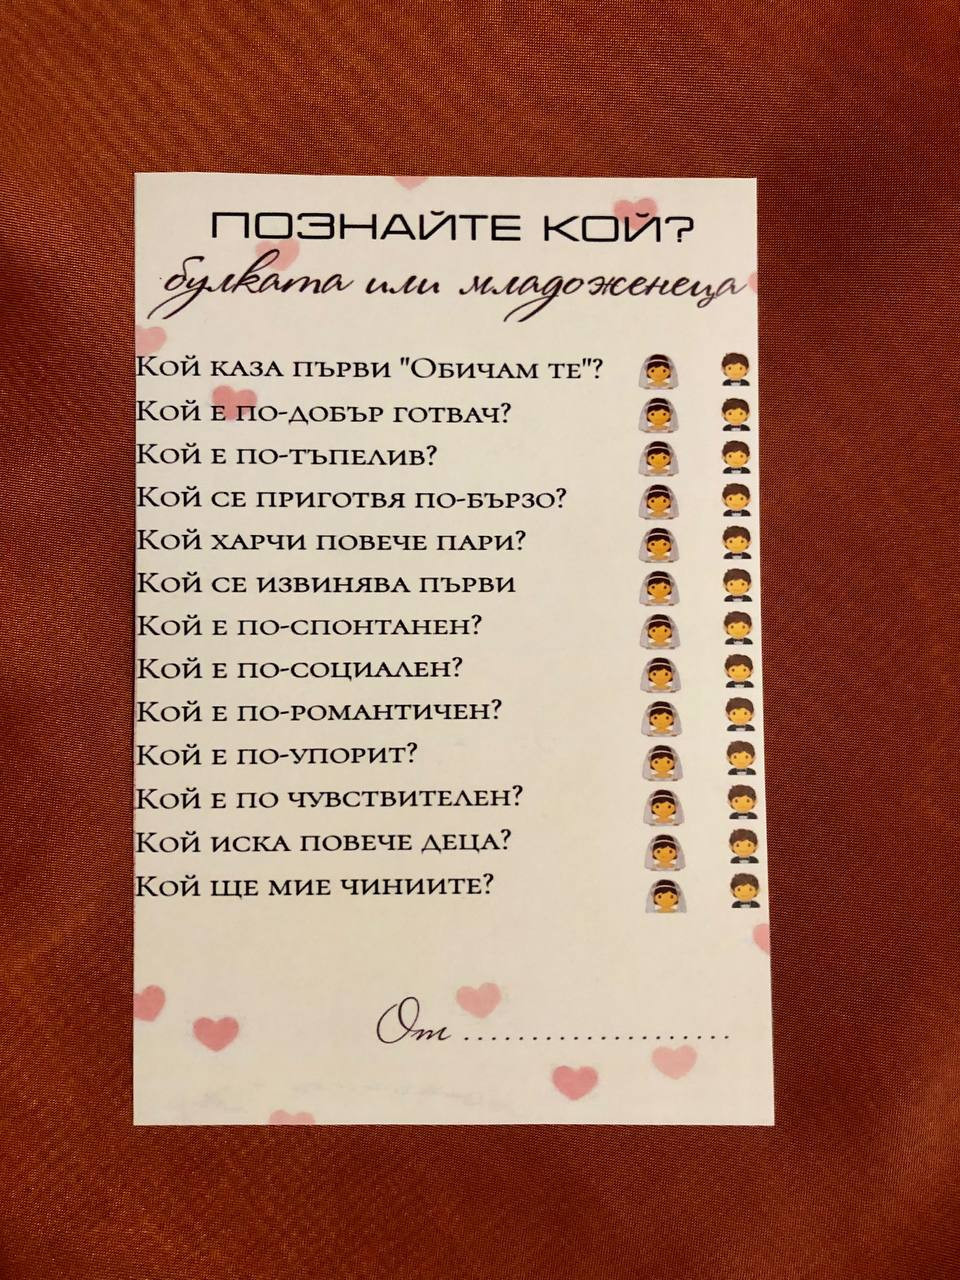 ПОЗНАЙТЕ КОЙ?
булката или младоженеца
Кой каза първи "Обичам те"?
Кой е по-добър готвач?
Кой е по-тъпелив?
Кой се приготвя по-бързо?
Кой харчи повече пари?
Кой се извинява първи
Кой е по-спонтанен?
Кой е по-социален?
Кой е по-романтичен?
Кой е по-упорит?
Кой е по чувствителен?
Кой иска повече деца?
Кой ще мие чиниите?
От ....................